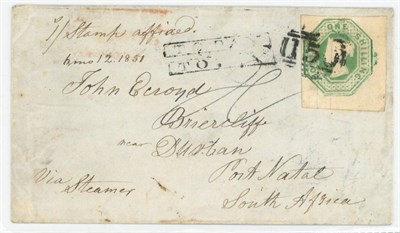 1/ Stamp affixed.
12. 1851
15
ONE SHILLING
John Ecroyd
Briercliff
near
Durban
Port Natal
South Africa
Via
Steamer